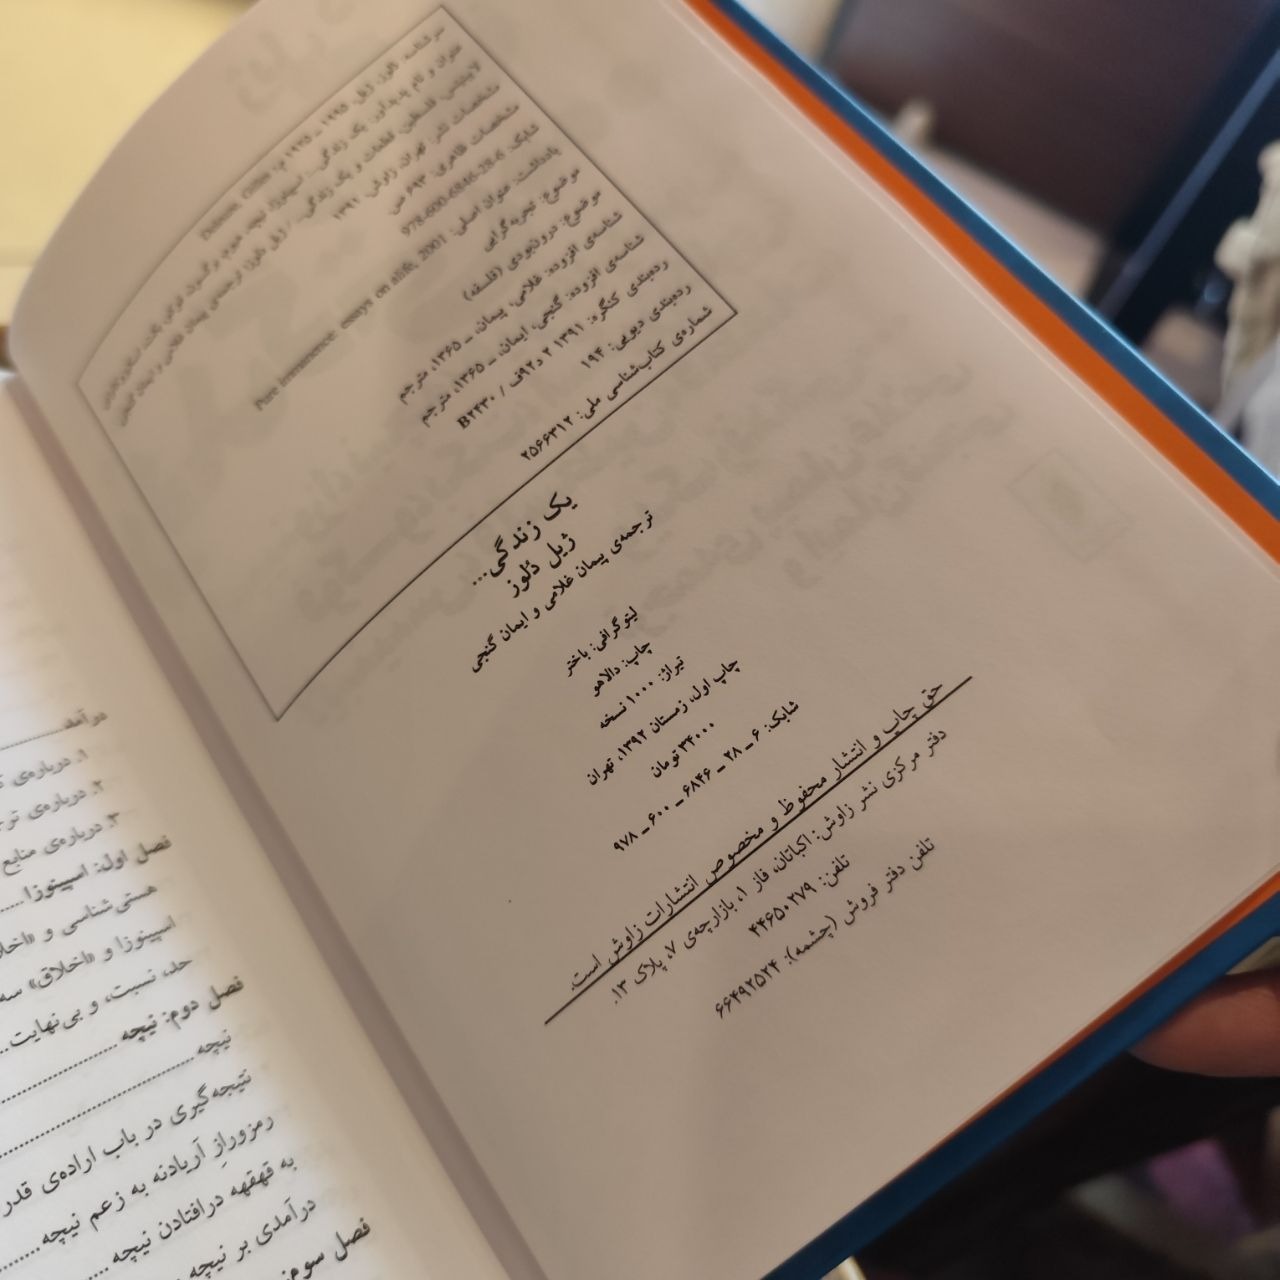 سرشناسه: دلوز، ژیل، ۱۹۲۵ ـ ۱۹۹۵ م. Deleuze, Gilles
عنوان و نام پدیدآور: یک زندگی...
مشخصات نشر: تهران، زاوش، ۱۳۹۱
مشخصات ظاهری: ۶۹۳ ص
شابک: 978-600-6846-28-6
یادداشت: عنوان اصلی: Pure immanence: essays on alife, 2001
موضوع: تجربه‌گرایی
موضوع: درون‌بودی (فلسفه)
شناسه‌ی افزوده: غلامی، پیمان، ـ ۱۳۶۵، مترجم
شناسه‌ی افزوده: گنجی، ایمان، ـ ۱۳۶۵، مترجم
رده‌بندی کنگره: ۱۳۹۱ ۲ د۹۲ف / B۲۴۳۰
رده‌بندی دیویی: ۱۹۴
شماره‌ی کتاب‌شناسی ملی: ۲۵۶۶۳۱۲
یک زندگی...
ژیل دُلوز
ترجمه‌ی پیمان غلامی و ایمان گنجی
لیتوگرافی: باختر
چاپ: دالاهو
تیراژ: ۱۰۰۰ نسخه
چاپ اول، زمستان ۱۳۹۲، تهران
۳۴۰۰۰ تومان
شابک: ۶ ـ ۲۸ ـ ۶۸۴۶ ـ ۶۰۰ ـ ۹۷۸
حق چاپ و انتشار محفوظ و مخصوص انتشارات زاوش است.
دفتر مرکزی نشر زاوش: اکباتان، فاز ۱، بازارچه‌ی ۷، پلاک ۱۳.
تلفن: ۴۴۶۵۰۲۷۹
تلفن دفتر فروش (چشمه): ۶۶۴۹۲۵۲۴
درآمد
۱. درباره‌ی
۲. درباره‌ی
۳. درباره‌ی منابع
فصل اول: اسپینوزا
هستی‌شناسی و
اسپینوزا و «اخلاق»
حد، نسبت، و بی‌نهایت
فصل دوم: نیچه
نیچه
نتیجه‌گیری در باب اراده‌ی قدر
رمزورازِ آریادنه به زعم نیچه
به قهقهه درافتادن نیچه
درآمدی بر نیچه
فصل سوم: